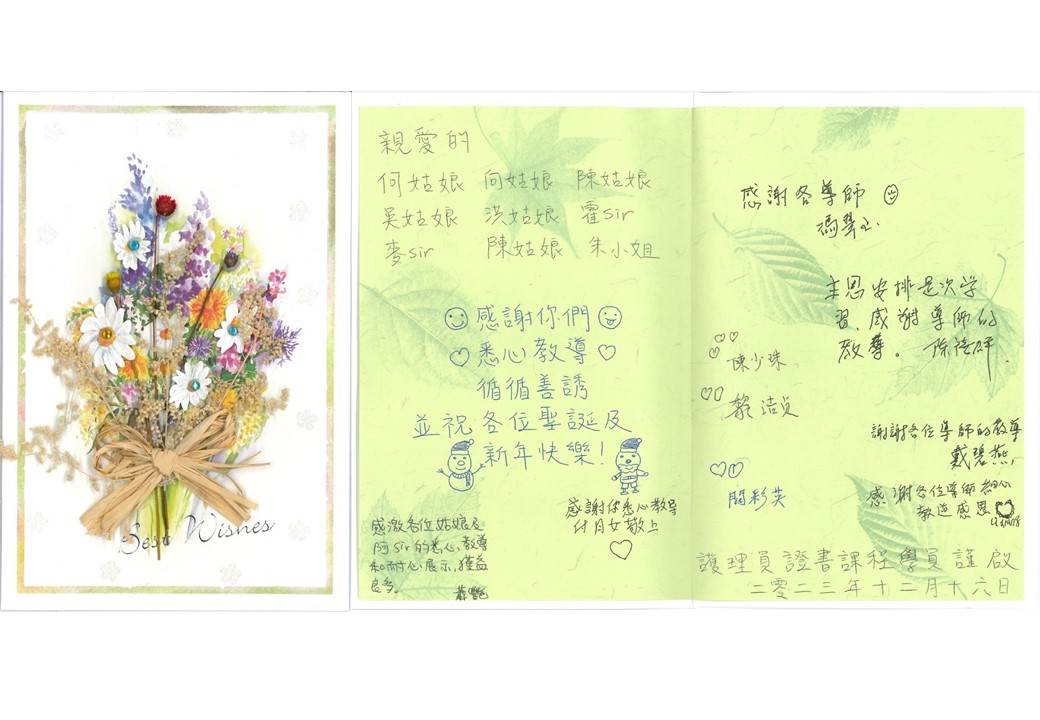 Best Wishes
親愛的
何姑娘 向姑娘 陳姑娘
吳姑娘 洪姑娘 霍sir
麥sir 陳姑娘 朱小姐
感謝你們
悉心教導
循循善誘
並祝各位聖誕及
新年快樂!
感謝你悉心教導
付月女敬上
感激各位姑娘及
阿Sir的悉心教導
和耐心展示,獲益
良多。
感謝各導師
馮翠玉
主恩安排是次学
習,感謝導師的
教導。
陳少珠
黎洁貞
謝謝各位導師的教導
戴碧燕
感謝各位導師細心
教導感恩
關彩英
護理員證書課程學員謹啟
二零二三年十二月十六日